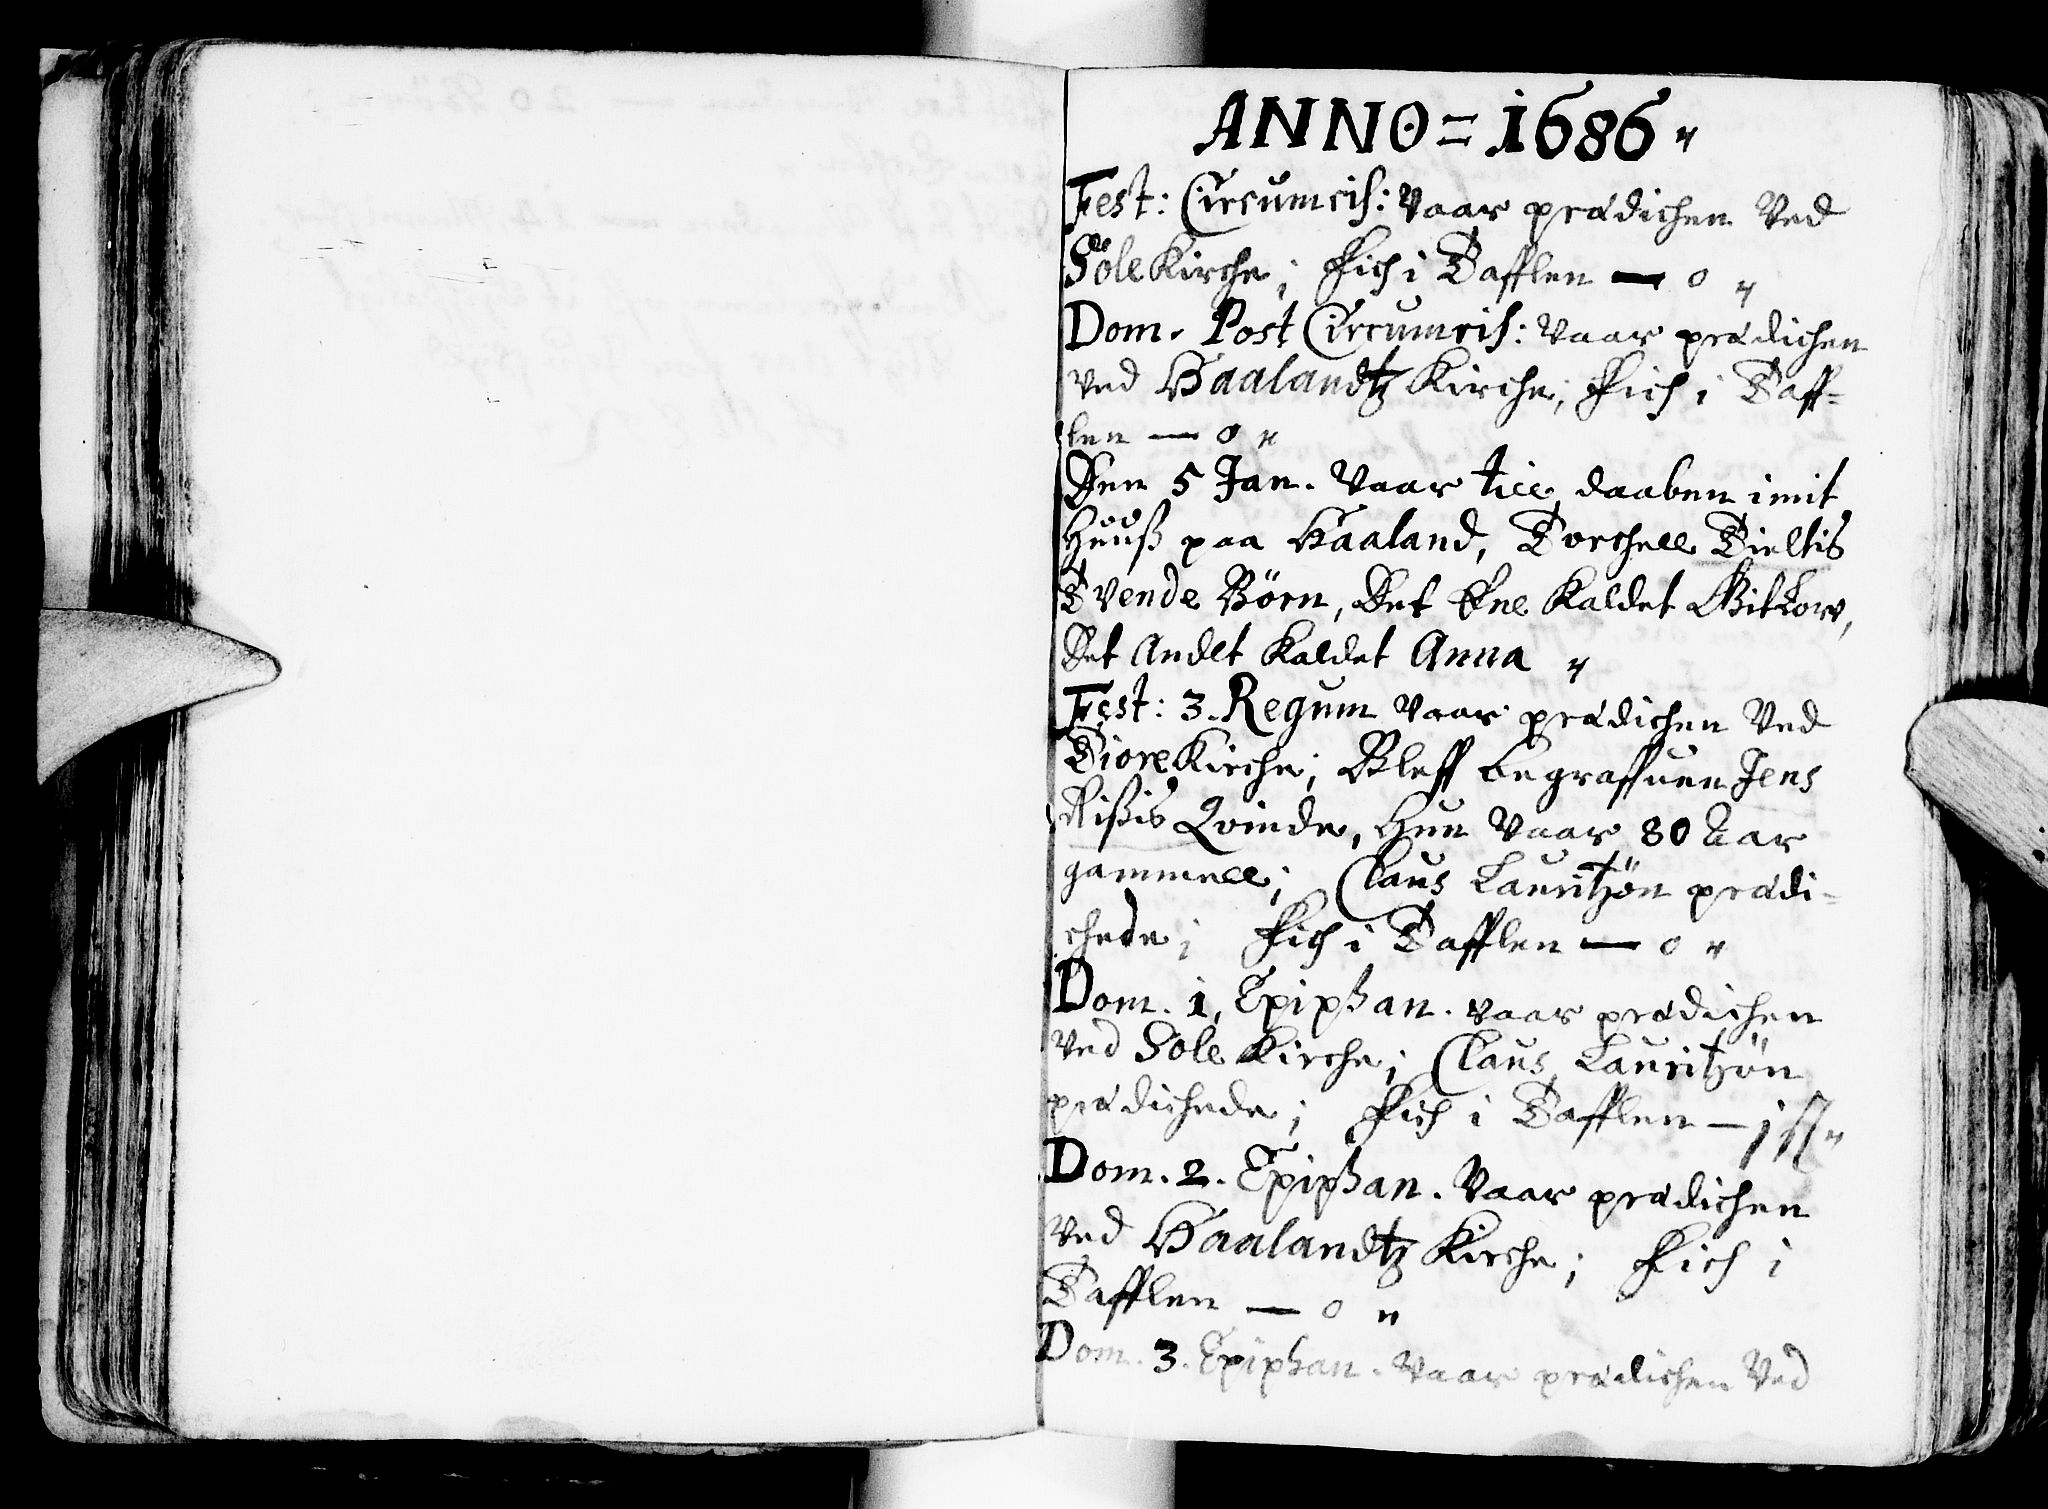 ANNO = 1686 "
Fest: Circumcis: Vaar prædichen Ved
Sole Kirche; Fich i Tafflen — 0 "
Dom. Post Circumcis: Vaar prædichen
ved Haalandtz Kirche; Fich i Taff=
len — 0 "
Den 5 Jan. Vaar till daaben i mit
Huuß paa Haaland, Torchell Tieltis
Tvende Börn, Det Ene Kaldet
Det Andet Kaldet Anna "
Fest: 3. Regum Vaar prædichen Ved
Tiore Kirche; Bleff begraffuen Jens
Rißis Qvinde, Hun Vaar 80 Aar
gammell; Claus Lauritzön prædi=
chede; Fich i Tafflen — 0 "
Dom. 1. Epiphan. Vaar prædichen
Ved Sole Kirche; Claus Lauritzön
prædichede; Fich i Tafflen — 1 ß "
Dom. 2. Epiphan. Vaar prædichen
Ved Haalandtz Kirche; Fich i
Tafflen — 0 "
Dom. 3. Epiphan. Vaar prædichen Ved